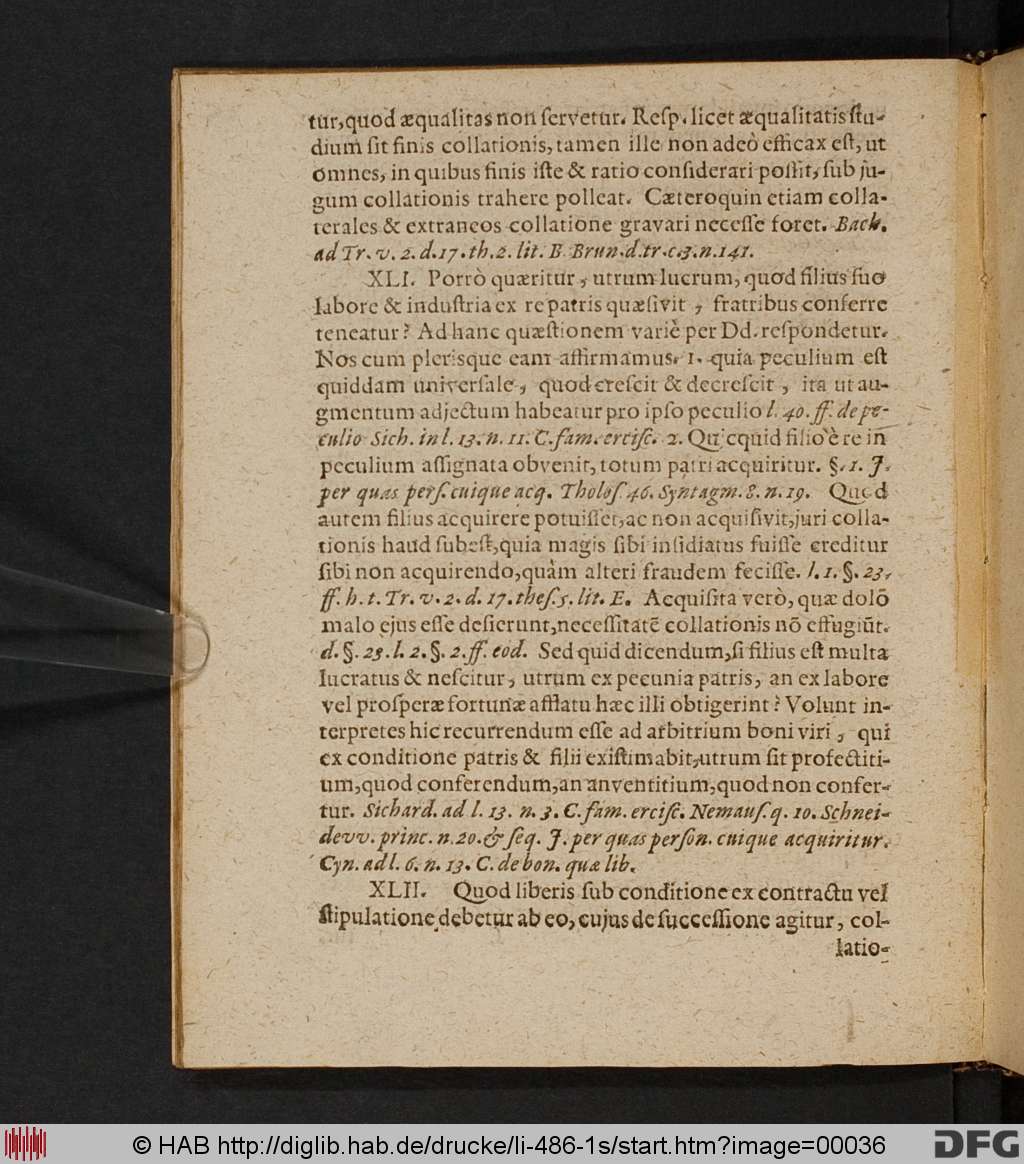 tur, quod æqualitas non ſervetur. Reſp. licet æqualitatis ſtu-
dium ſit finis collationis, tamen ille non adeò efficax eſt, ut
omnes, in quibus finis iſte & ratio conſiderari poſſit, ſub ju-
gum collationis trahere polleat. Cæteroquin etiam colla-
terales & extraneos collatione gravari neceſſe foret. Bach.
ad Tr. v. 2. d. 17. th. 2. lit. B Brun. d. tr. c. 3. n. 141.
XLI. Porrò quæritur, utrum lucrum, quod filius ſuo
labore & induſtria ex re patris quæſivit, fratribus conferre
teneatur? Ad hanc quæſtionem variè per Dd. reſpondetur.
Nos cum plerisque eam affirmamus. 1. quia peculium eſt
quiddam univerſale, quod creſcit & decreſcit, ita ut au-
gmentum adjectum habeatur pro ipſo peculio l. 40. ff. de pe-
culio Sich. in l. 13. n. 11. C. fam. erciſc. 2. Quicquid filio è re in
peculium aſſignata obvenit, totum patri acquiritur. §. 1. J.
per quas perſ. cuique acq. Tholoſ. 46. Syntagm. 8. n. 19. Quod
autem filius acquirere potuiſſet, ac non acquiſivit, juri colla-
tionis haud ſubeſt, quia magis ſibi inſidiatus fuiſſe creditur
ſibi non acquirendo, quàm alteri fraudem feciſſe. l. 1. §. 23.
ff. h. t. Tr. v. 2. d. 17. theſ. 5. lit. E. Acquiſita verò, quæ dolō
malo ejus eſſe deſierunt, neceſſitatē collationis nō effugiūt.
d. §. 23. l. 2. §. 2. ff. eod. Sed quid dicendum, ſi filius eſt multa
lucratus & neſcitur, utrum ex pecunia patris, an ex labore
vel proſperæ fortunæ afflatu hæc illi obtigerint? Volunt in-
terpretes hic recurrendum eſſe ad arbitrium boni viri, qui
ex conditione patris & filii exiſtimabit, utrum ſit profectiti-
um, quod conferendum, an anventitium, quod non confer-
tur. Sichard. ad l. 13. n. 3. C. fam. erciſc. Nemauſ. q. 10. Schnei-
devv. princ. n. 20. & ſeq. J. per quas perſon. cuique acquiritur.
Cyn. ad l. 6. n. 13. C. de bon. quæ lib.
XLII. Quod liberis ſub conditione ex contractu vel
ſtipulatione debetur ab eo, cujus de ſucceſſione agitur, col-
latio-
© HAB http://diglib.hab.de/drucke/li-486-1s/start.htm?image=00036
DFG